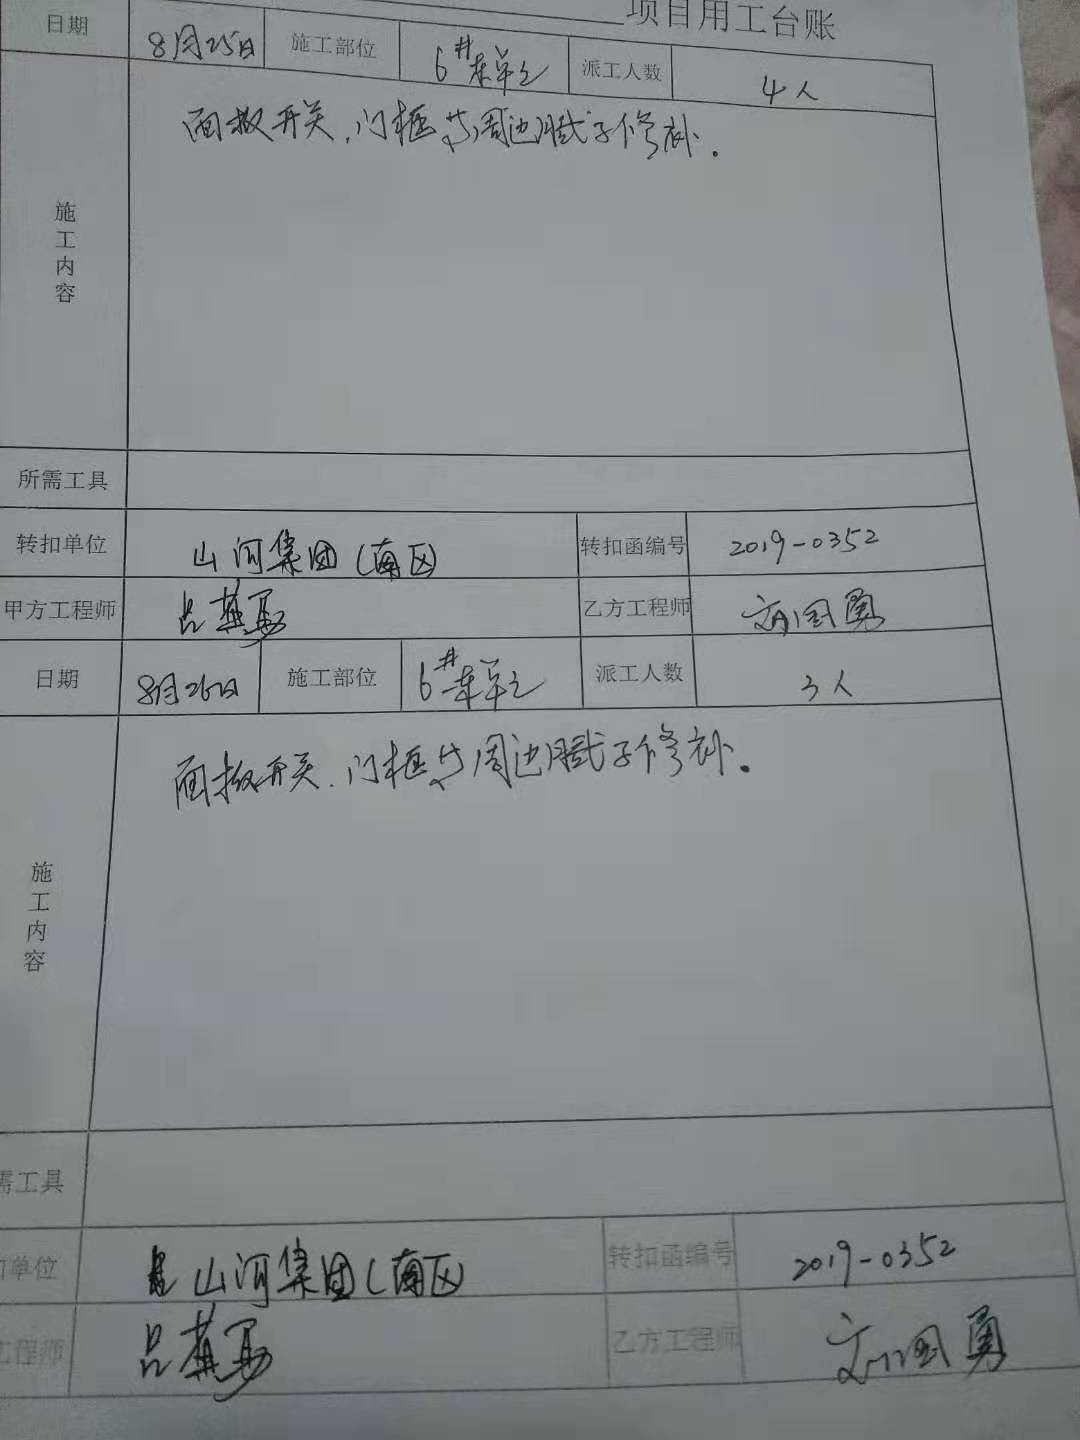 项目用工台账
日期 8月25日 施工部位 6#东单元 派工人数 4人
施工内容 面板开关、门框等周边腻子修补。
所需工具
转扣单位 山河集团(南区) 转扣函编号 2019-0352
甲方工程师 乙方工程师 国勇
日期 8月26日 施工部位 6#东单元 派工人数 3人
施工内容 面板开关、门框等周边腻子修补。
需工具
单位 山河集团(南区) 转扣函编号 2019-0352
工程师 乙方工程师 国勇